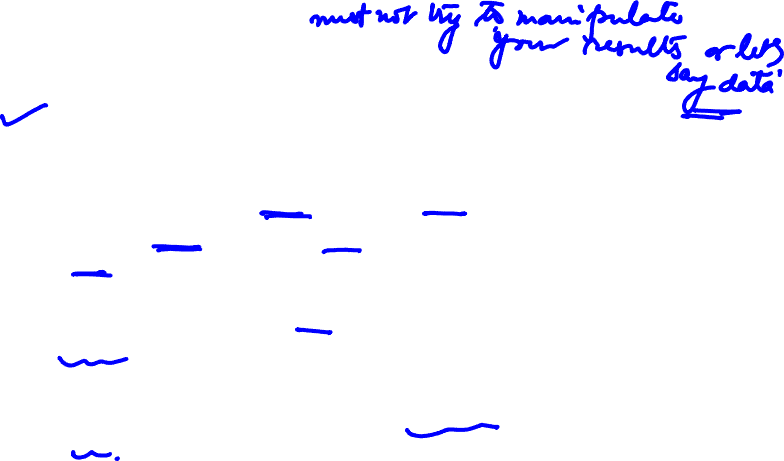 must not try to manipulate
your results or lets
say data'